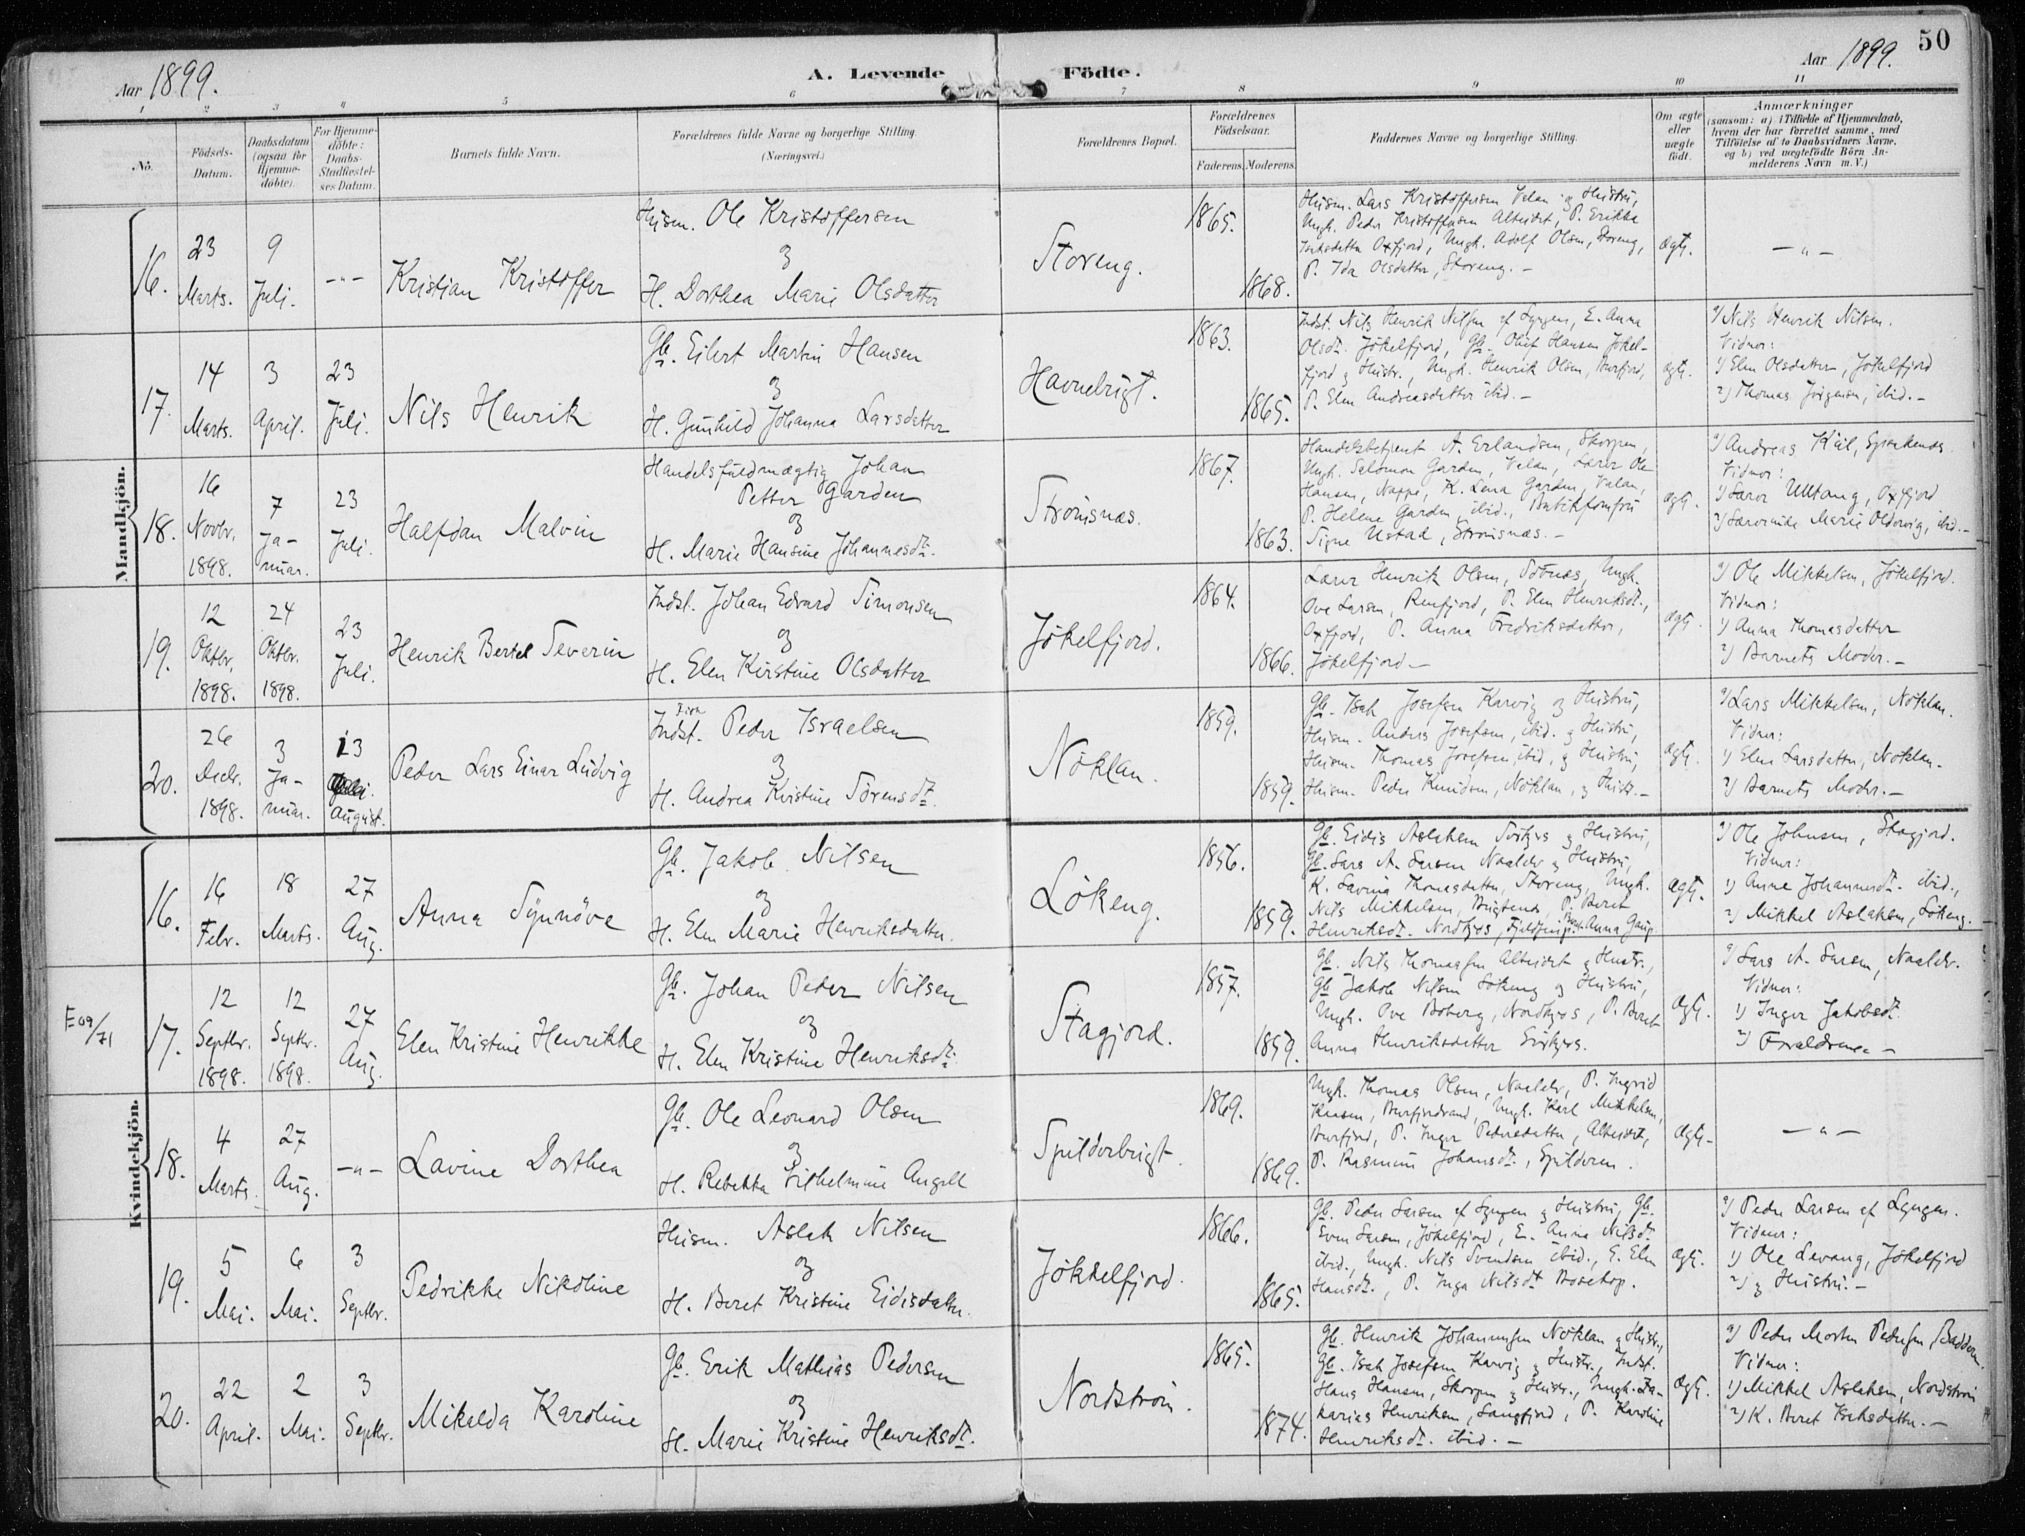 50
Aar 1899.
A. Levende Födte.
Aar 1899.
1 2 3 4 5 6 7 8 9 10 11
No.
Födsels-Datum.
Daabsdatum (ogsaa for Hjemmedöbte).
For Hjemmedöbte: Daabs-Stadfæstelses Datum.
Barnets fulde Navn.
Forældrenes fulde Navne og borgerlige Stilling. (Næringsvei.)
Forældrenes Bopæl.
Forældrenes Födselsaar.
Faderens. Moderens.
Faddernes Navne og borgerlige Stilling.
Om ægte eller uægte födt.
Anmærkninger
(saasom: a) i Tilfælde af Hjemmedaab,
hvem der har forrettet samme, med
Tilföielse af to Daabsvidners Navne,
og b) ved uægtefödte Börn Anmelderens Navn m.V.)
Mandkjön.
16.
23 Marts.
9 Juli.
-"-
Kristian Kristoffer
Husm. Ole Kristoffersen
og
H. Dorthea Marie Olsdatter
Storeng.
1865.
1868.
Husm. Lars Kristoffersen Valan og Hustru,
Ungk. Peder Kristoffersen Alteidet, P. Erikka
Isaksdatter Oxfjord, Ungk. Adolf Olsen, Storeng,
P. Ida Olsdatter, Storeng. -
ægte.
- " -
17.
14 Marts.
3 April.
23 Juli.
Nils Henrik
Gb. Eilert Martin Hansen
og
H. Gunhild Johanna Larsdatter
Havnebugt.
1863.
1865.
Indst. Nils Henrik Nilsen af Lyngen, E. Anna
Olsdt. Jökelfjord, Gb. Oluf Hansen Jökel-
fjord og Hustr., Ungk. Henrik Olsen, Burfjord,
P. Elen Andreasdatter ibid. -
ægte.
a) Nils Henrik Nilsen.
Vidner:
1) Elen Olsdatter, Jökelfjord
2) Thomas Jörgensen, ibid. -
18.
16 Novbr. 1898.
7 Ja-nuar.
23 Juli.
Halfdan Malvin
Handelsfuldmægtig Johan
Petter Garden
og
H. Marie Hansine Johannesdt.
Strömsnæs.
1867.
1863.
Handelsbetjent A. Erlandsen, Skorpen,
Ungk. Salomon Garden, Valan, Lærer Ole
Hansen, Nappe, K. Lena Garden, Valan,
P. Helene Garden, ibid., Butikjomfru
Signe Ustad, Strömsnæs. -
ægte.
a) Andreas Kiil, Spirkenæs
Vidner:
1) Lærer Ulltang, Oxfjord
2) Lærerinde Marie Oldervig, ibid. -
19.
12 Oktbr. 1898.
24 Oktbr. 1898.
23 Juli.
Henrik Bertel Severin
Indst. Johan Edvard Simonsen
og
H. Elen Kirstine Olsdatter
Jökelfjord.
1864.
1866.
Lærer Henrik Olsen, Sötnes, Ungk.
Ove Larsen, Reinfjord, P. Elen Henriksdt.,
Oxfjord, P. Anna Fredriksdatter,
Jökelfjord -
ægte.
a) Ole Mikkelsen, Jökelfjord.
Vidner:
1) Anna Thomasdatter
2) Barnets Moder. -
20.
26 Decbr. 1898.
3 Ja-nuar.
13 August.
Peder Lars Einar Ludvig
Indst. Peder Israelsen
og
H. Andrea Kristine Sörensdt.
Nöklan.
1859.
1859.
Gb. Isak Josefsen Karvig og Hustru,
Husm. Anders Josefsen, ibid. og Hustru,
Husm. Thomas Josefsen, ibid. og Hustru,
Husm. Peder Knudsen, Nöklan, og Hustr. -
ægte.
a) Lars Mikkelsen, Nöklan.
Vidner:
1) Elen Larsdatter, Nöklan.
2) Barnets Moder. -
Kvindekjön.
16.
16 Febr.
18 Marts.
27 Aug.
Anna Synnöve
Gb. Jakob Nilsen
og
H. Elen Marie Henriksdatter.
Lökeng.
1856.
1859.
Gb. Eidis Aslaksen Sörkjos og Hustru,
Gb. Lars A. Larsen Naalder og Hustru,
K. Lavina Thomasdatter, Storeng, Ungk.
Nils Mikkelsen, P. Beret
Henriksdt. Nordkjos, Anna
ægte.
a) Ole Johnsen, Stagjord.
Vidner:
1) Anne Johannesdt. ibid.,
2) Mikkel Aslaksen, Lökeng.
E 09/71
17.
12 Septbr. 1898.
12 Septbr. 1898.
27 Aug.
Elen Kristine Henrikke
Gb. Johan Peder Nilsen
og
H. Elen Kristine Henriksdt.
Stagjord.
1857.
1859.
Gb. Nils Thomassen Alteidet og Hustr.,
Gb. Jakob Nilsen Lökeng og Hustru,
Ungk. Ove Boberg, Nordkjos, P. Beret
Anna Henriksdatter Sörkjos.
ægte.
a) Lars A. Larsen, Naalder.
Vidner:
1) Inger Jakobsdt.
2) Forældrene -
18.
4 Marts.
27 Aug.
-"-
Lavine Dorthea
Gb. Ole Leonard Olsen
og
H. Rebekka Vilhelmine Angell
Spilderbugt.
1869.
1869.
Ungk. Thomas Olsen, Naalder, P. Ingrid
Burfjord, Ungk. Karl Mikkelsen,
Burfjord, P. Inger Pedersdatter, Alteidet,
P. Rasmine Johansdt., Spilderen.
ægte -
- " -
19.
5 Mai.
6 Mai.
3 Septbr.
Pedrikke Nikoline
Husm. Aslak Nilsen
og
H. Beret Kristine Eidisdatter.
Jökkelfjord.
1866.
1865.
Gb. Peder Larsen af Lyngen og Hustru, Gb.
Even Larsen, Jökelfjord, E. Anna Nilsdt.
ibid., Ungk. Nils Svendsen ibid., E. Elen
Hansdt., P. Inga Nilsdt. Bosekop.
ægte.
a) Peder Larsen af Lyngen.
Vidner:
1) Ole Levang, Jökelfjord
2) og Hustru. -
20.
22 April.
2 Mai.
3 Septbr.
Mikalda Karoline
Gb. Erik Mathias Pedersen
og
H. Marie Kristine Henriksdt.
Nordström.
1865.
1874.
Gb. Henrik Johannesen Nöklan og Hustr.,
Gb. Isak Josefsen Karvig og Hustr., Indst.
Hans Hansen, Skorpen og Hustr., Ungk. Za-
karias Henriksen, Langfjord, P. Karoline
Henriksdt. ibid. -
ægte.
a) Peder Morten Pedersen, Badderen.
Vidner:
1) Mikkel Aslaksen, Nordström
2) K. Beret Isaksdatter. -